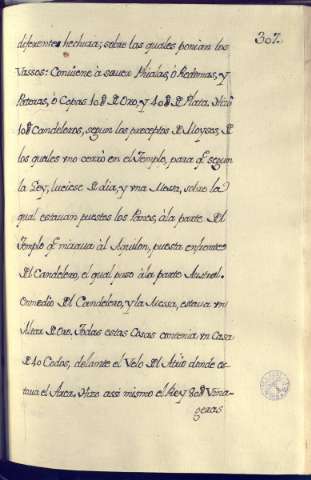 307.
diferentes hechuras; sobre las quales ponian los
Vassos: Conviene à saver Phialas, ò Redomas, y
Pateras, ò Copas 10U de Oro, y 40U de Plata. Hizo
10U Candeleros, segun los preceptos de Moyses, de
los queles uno cerró en el Templo, para qe segun
la Ley, luciese de dia, y una Messa, sobre la
qual estavan puestos los Panes, à la parte del
Templo qe mirava àl Aquilon, puesta enfrente
del Candelero, el qual puso à la parte Austral.
Enmedio del Candelero, y la Messa, estava un
Altar de Oro. Todas estas Cosas contenia un Casa
de 40 Codos, delante el Velo del Atrio donde es-
tava el Arca. Hizo assi mismo el Rey 80U Vina-
geras